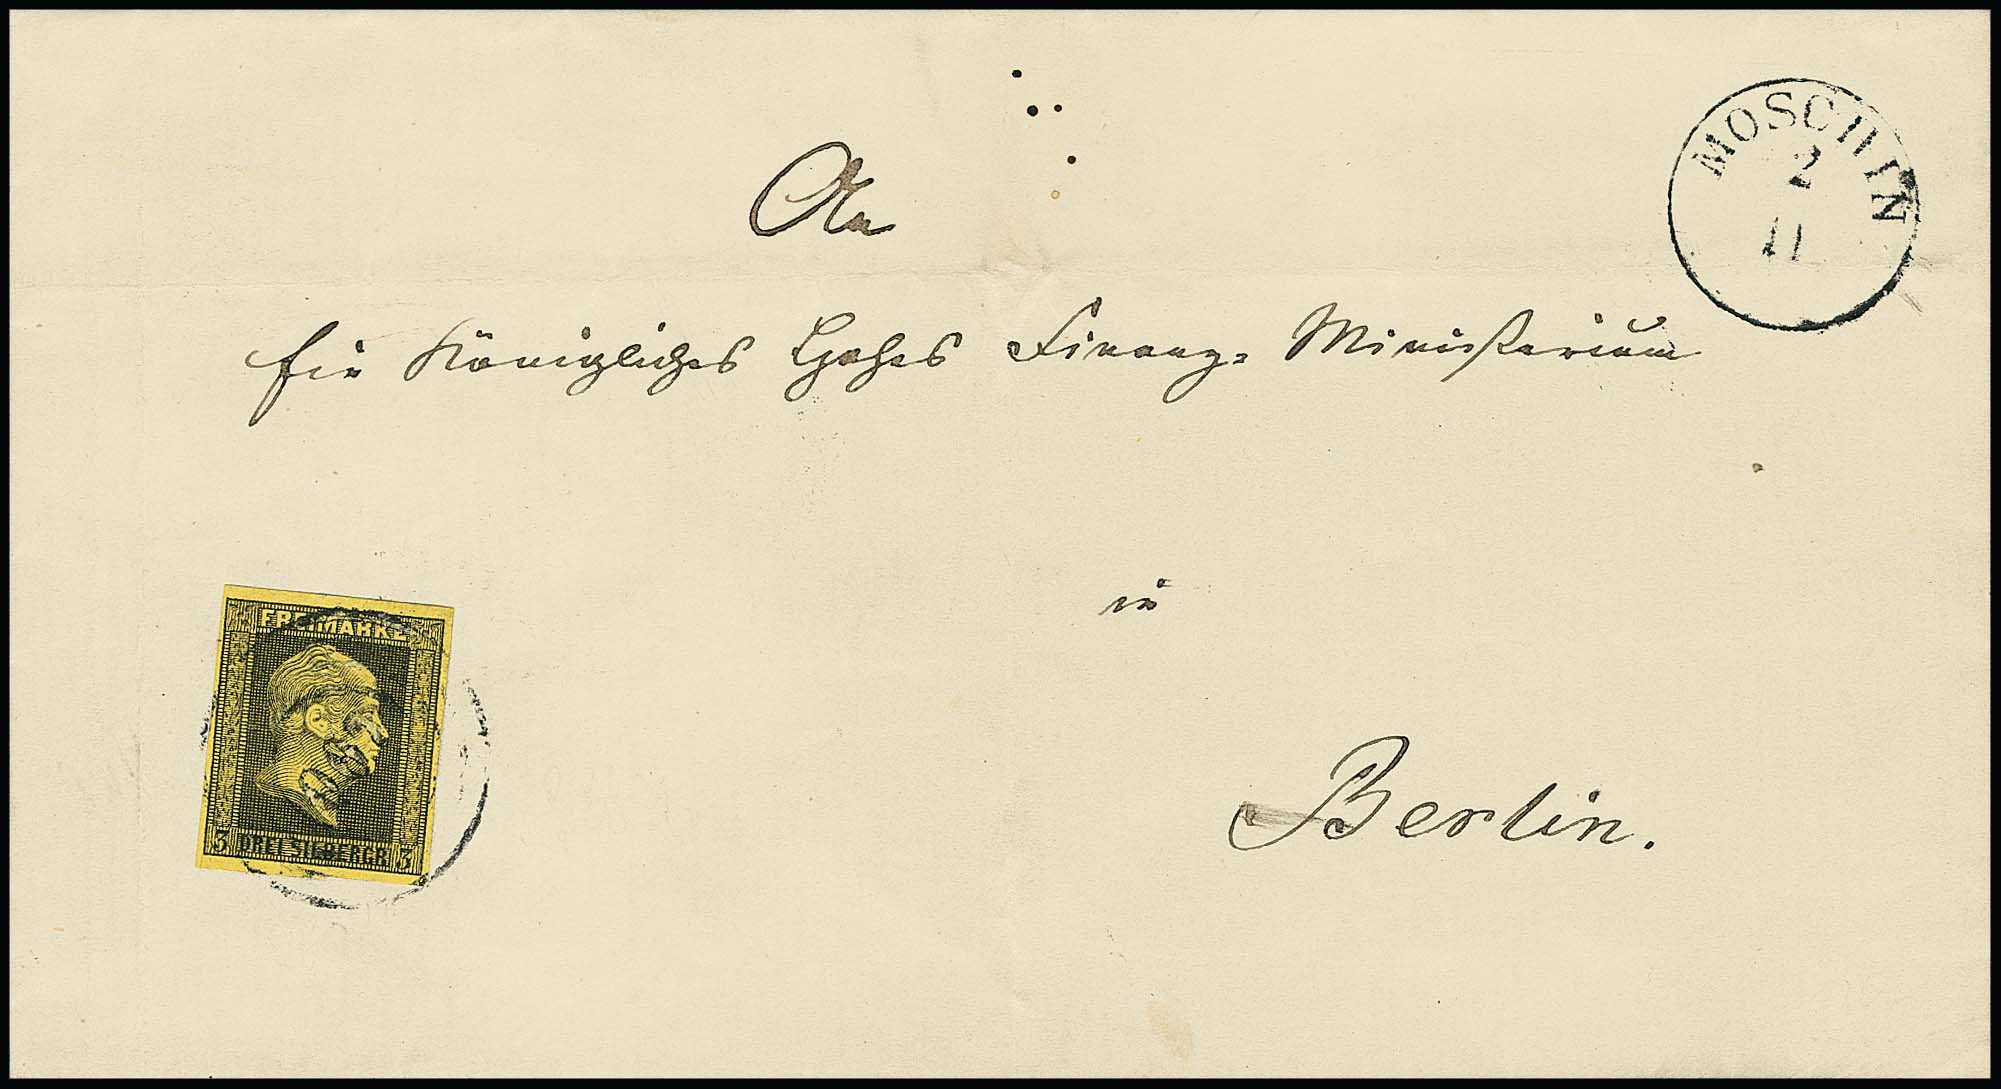 MOSCHIN
2
11
An
Ein Königliches Hohes Finanz= Ministerium
in
Berlin.
FREIMARKE
3 DREI SILBERGR. 3